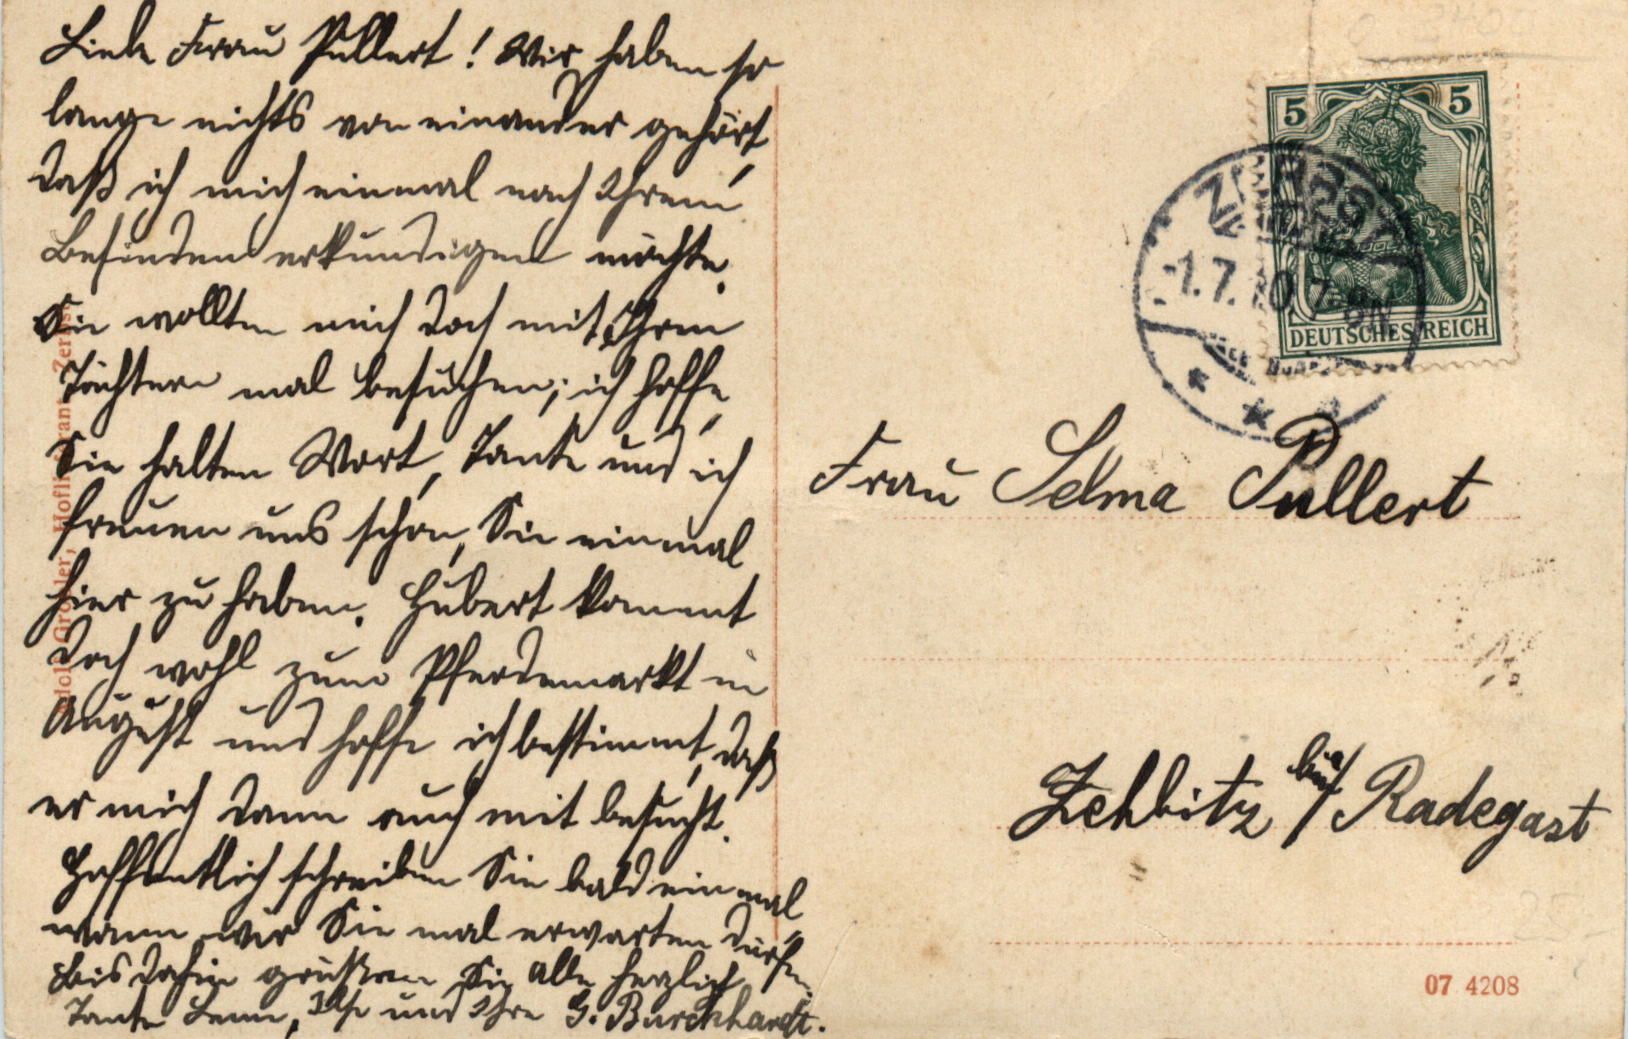 Liebe Frau Püllert! Wir haben so
lange nichts von einander gehört,
daß ich mich einmal nach Ihrem
Befinden erkundigen möchte.
Sie wollten mich doch mit Ihren
Töchtern mal besuchen; ich hoffe,
Sie halten Wort, Tante und ich
freuen uns schon, Sie einmal
hier zu haben. Hubert kommt
doch wohl zum Pferdemarkt im
August und hoffe ich bestimmt, daß
er mich dann auch mit besucht.
Hoffentlich schreiben Sie bald einmal
wann wir Sie mal erwarten dürfen.
Bis dahin grüßen Sie alle herzlich
Tante und Ihre G. Burckhardt.
Hofl Zerbst
5 5
DEUTSCHES REICH
ZERBST
-1.7.10.7-8N
Frau Selma Püllert
Zehbitz bei Radegast
07 4208